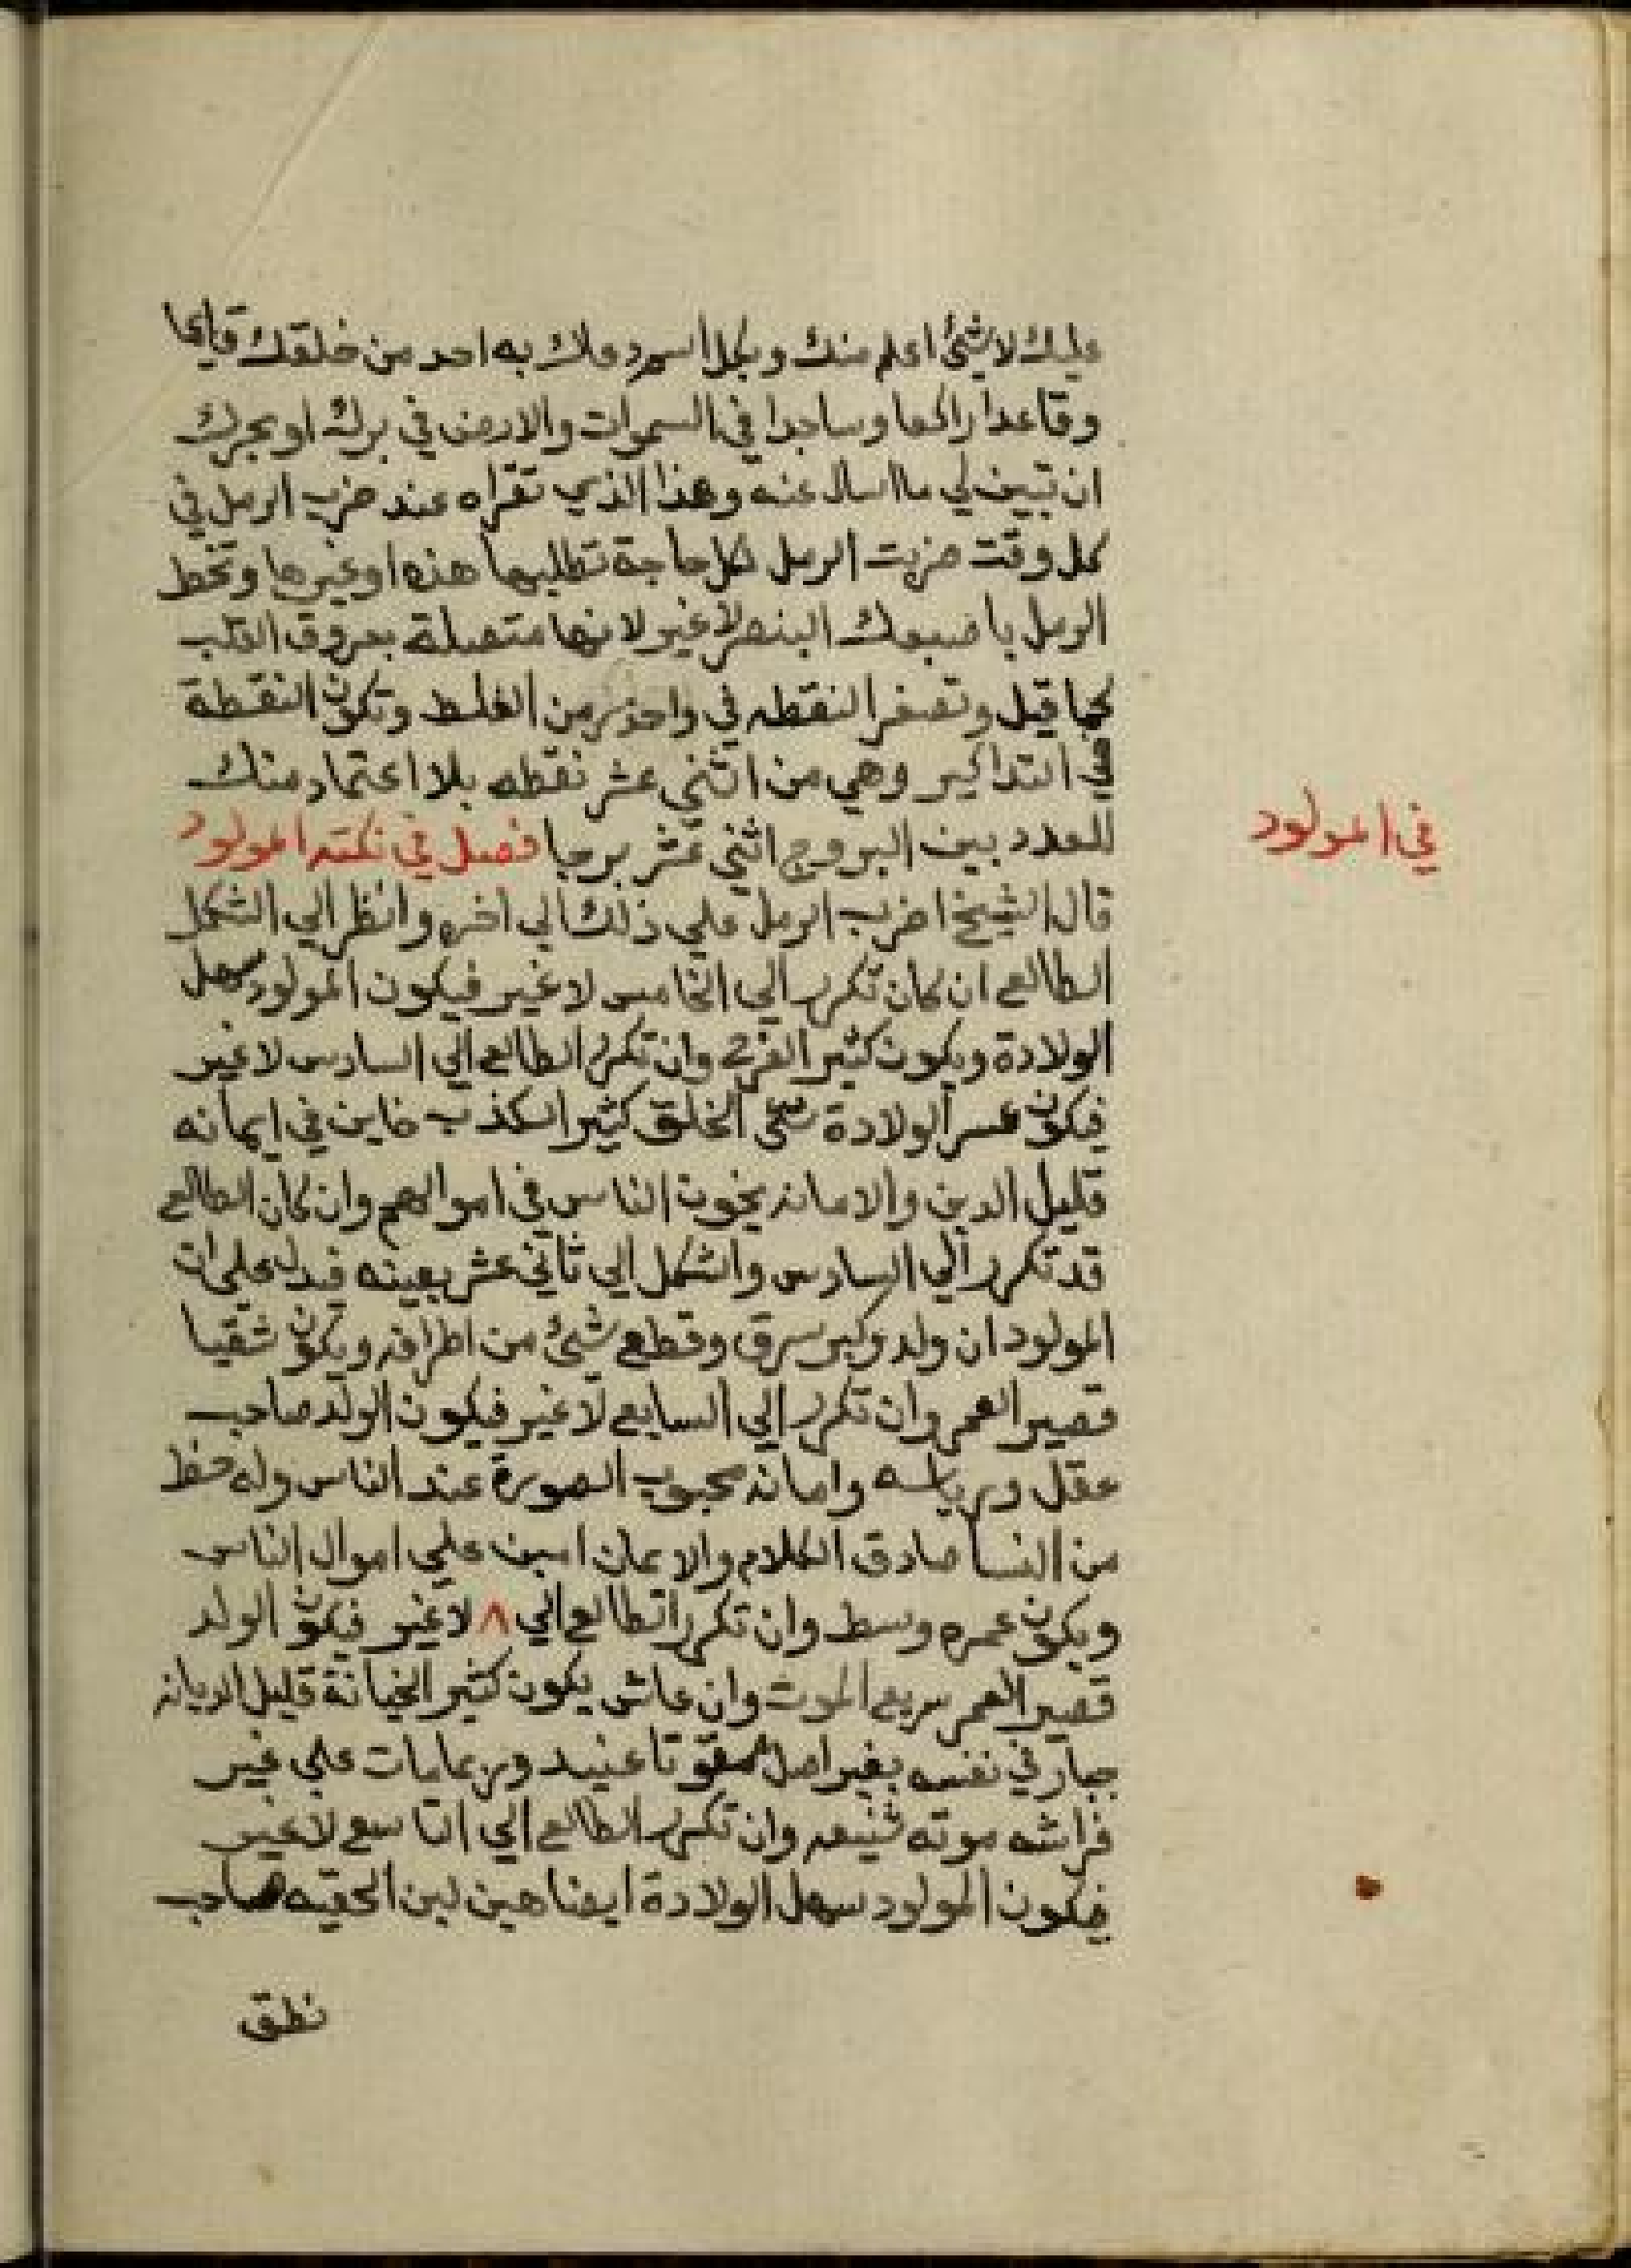 عليك لا شئ اعلم منك وبكل اسم دعاك به احد من خلقك قايما
وقاعدا راكعا وساجدا في السموات والارض في برك او بحرك
ان تبين لي ما اسال عنه وهذا الذي تقراه عند ضرب الرمل في
كل وقت ضربت الرمل لكل حاجة تطلبها هذه او غيرها وتخط
الرمل باصبعك البنصر لا غير لانها متصلة بعروق القلب
كما قيل وتصغر النقطه في من الغلط وتكون النقطة
في وهي من اثني عشر نقطه بلا اعتماد منك
للعدد بين البروج اثني عشر برجا فصل في نكته المولود
في المولود
قال الشيخ اضرب الرمل علي ذلك الي اخره وانظر الي الشكل
الطالع ان كان تكرر الي الخامس لا غير فيكون المولود سهل
الولادة ويكون كثير الفرح وان تكرر الطالع الي السادس لا غير
فيكون عسر الولادة الخلق كثير الكذب خاين في ايمانه
قليل الدين والامانه يخون الناس في اموالهم وان كان الطالع
قد تكرر الي السادس والشكل الي ثاني عشر بعينه فيدل علي ان
المولود ان ولد وكبر سرق وقطع شئ من اطرافه ويكون شقيا
قصير العمر وان تكرر الي السابع لا غير فيكون الولد صاحب
عقل ورياسه وامانه محبوب الصورة عند الناس وله حظ
من النسا صادق الكلام والايمان امين علي اموال الناس
ويكون عمره وسط وان تكرر الطالع الي ٨ لا غير فيكون الولد
قصير العمر سريع الموت وان عاش يكون كثير الخيانة قليل الديانه
جبار في نفسه بغير اصل ممقوتا عنيد وربما مات علي غير
فراشه موته شنيعه وان تكرر الطالع الي التاسع لا غير
فيكون المولود سهل الولادة ايضا هين لين صاحب
نطق